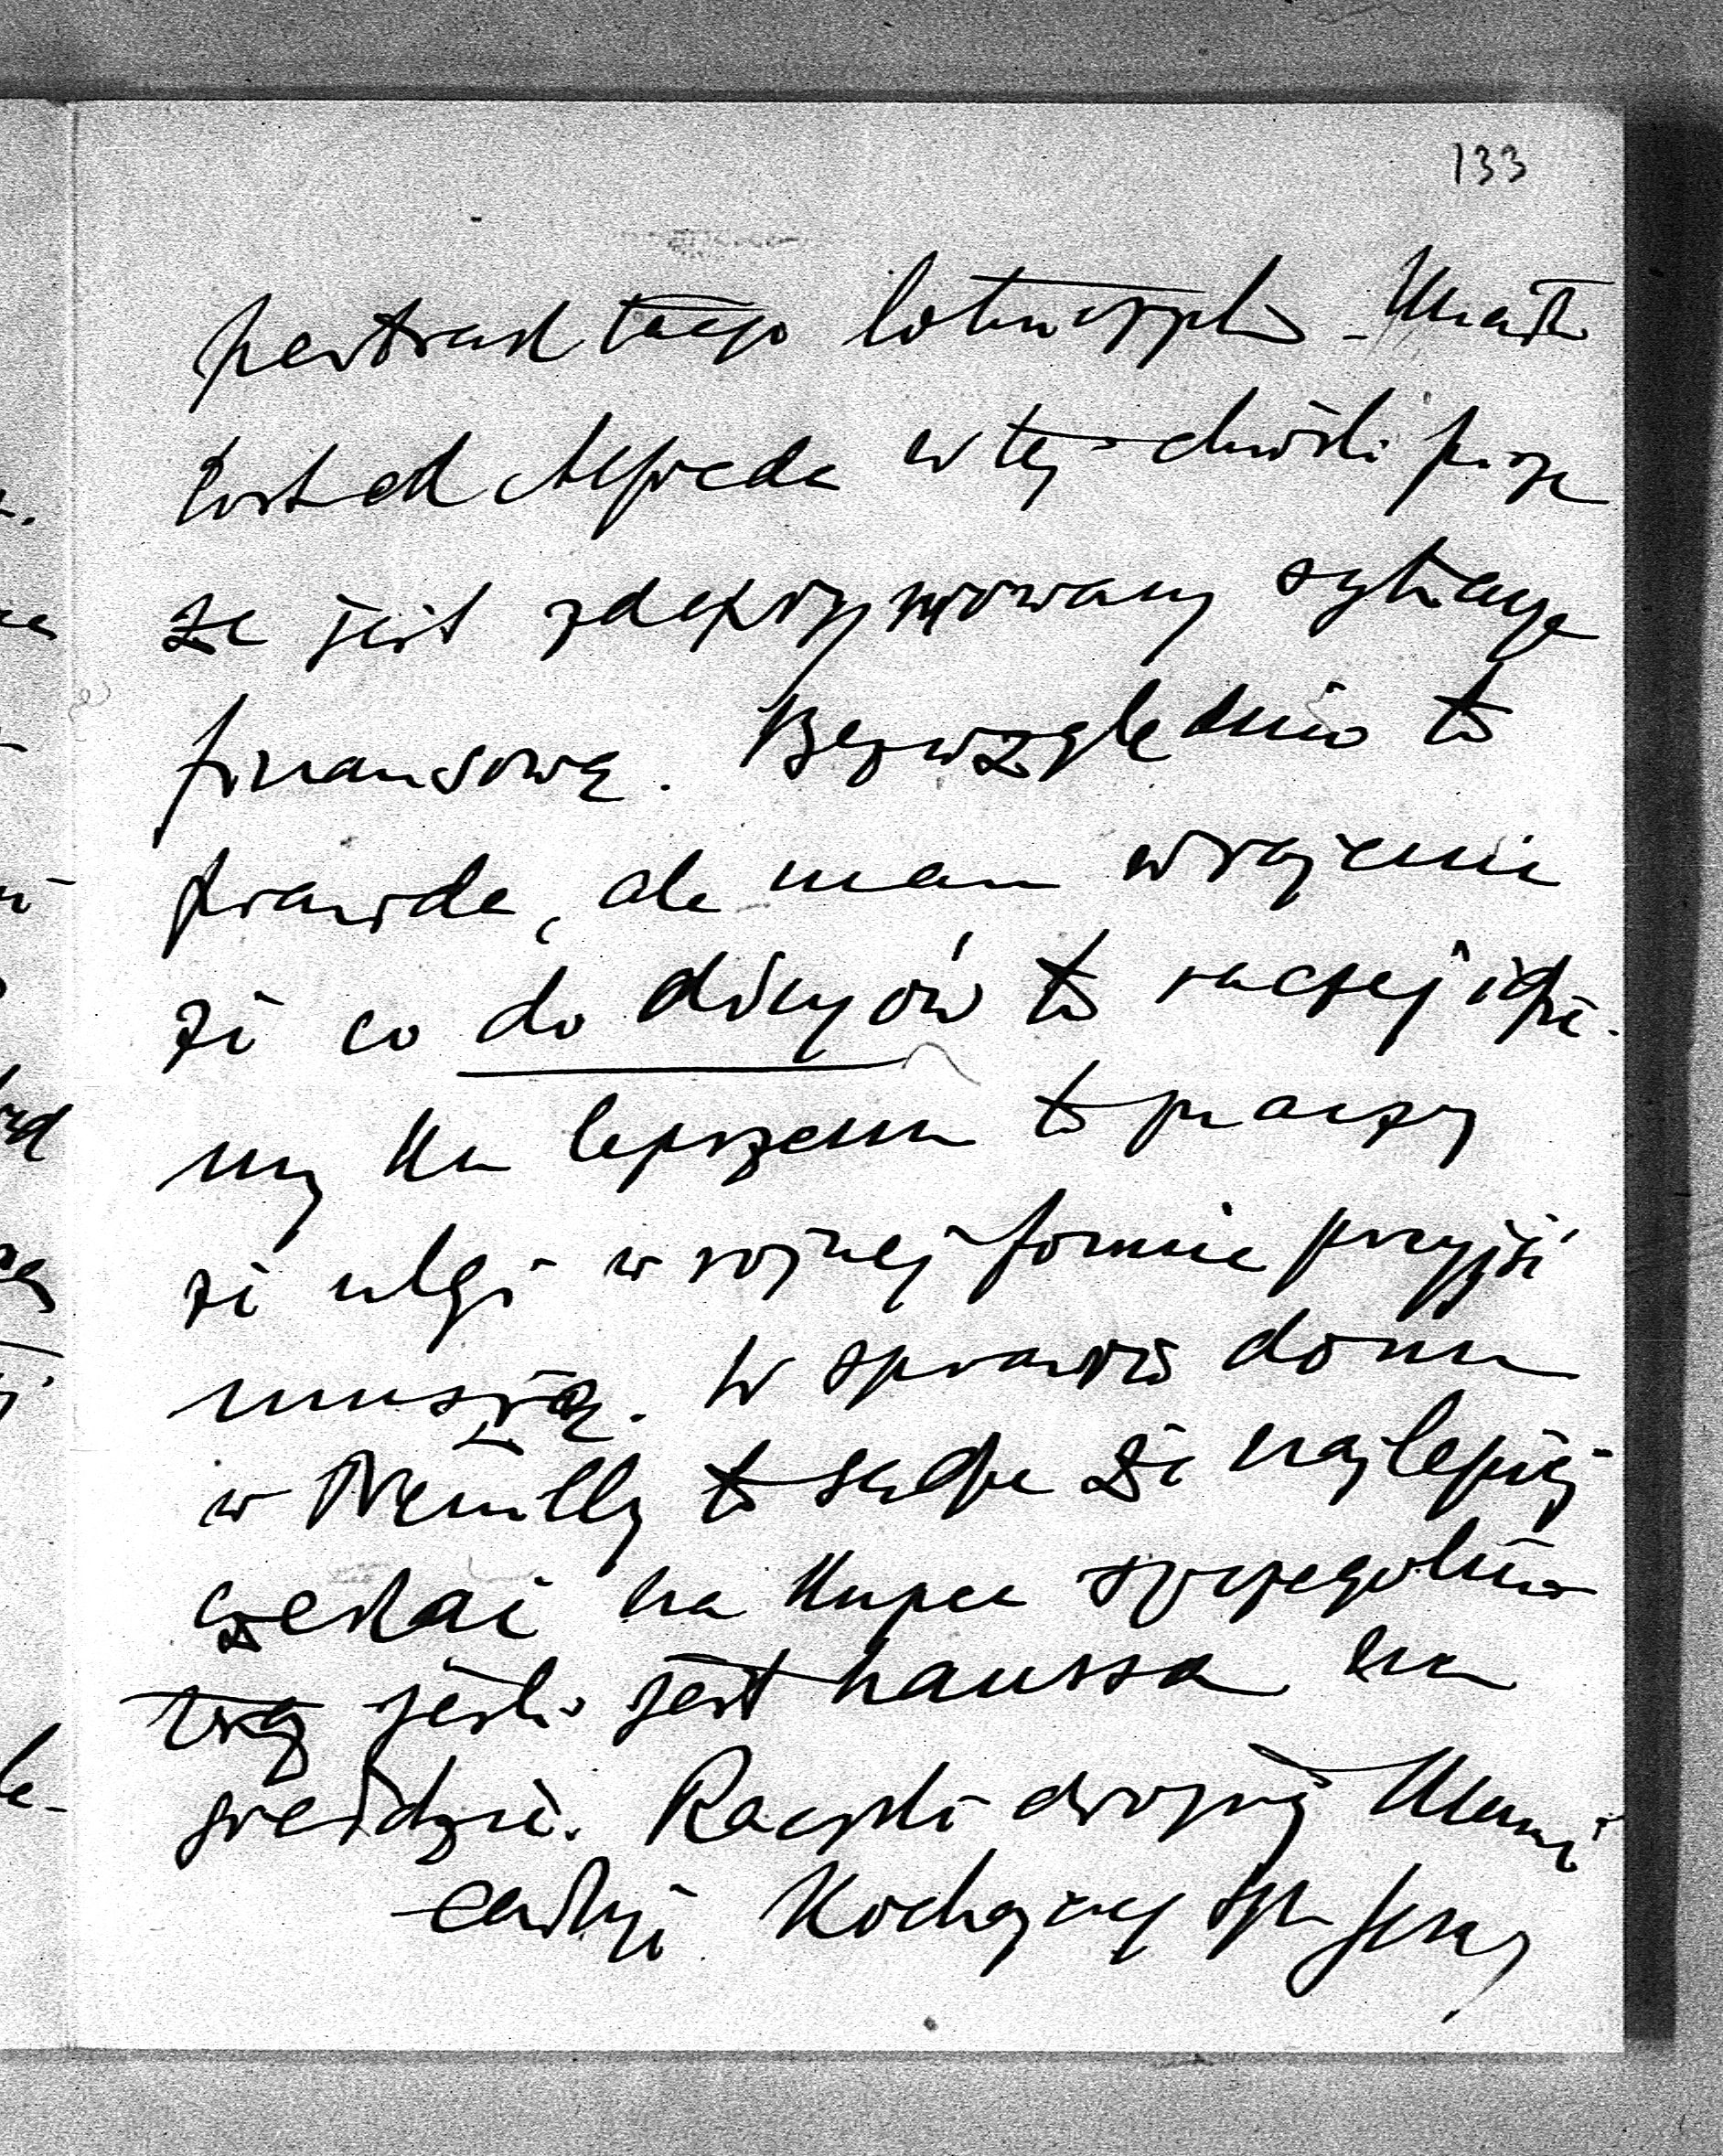 133
pertraktacyo Miał
list od Alfreda w tej chwili pisze
że jest zdeprymowany sytuacyą
finansową. Bezwzględnie to
prawda, ale mam wrażenie
że co do to raczej idzie-
my ku lepszemu to znaczy
że ulgi w rożnej formie przyjść
muszą. W sprawie domu
w Neuilly to sądze że najlepiej
czekać na kupca szczegolnie
teraz jeśli jest haussa na
giełdzie. Rączki drogiej Mamy
całuję Kochający syn Jerzy